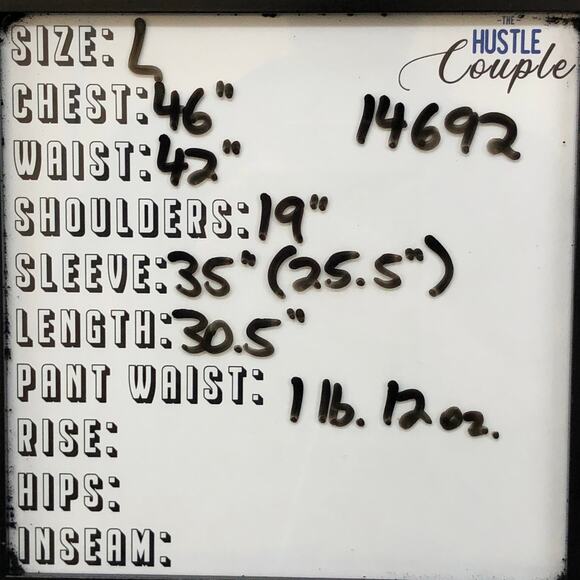 -THE-
HUSTLE
Couple
SIZE: L
CHEST: 46"
14692
WAIST: 42"
SHOULDERS: 19"
SLEEVE: 35" (25.5")
LENGTH: 30.5"
PANT WAIST:
1 lb. 12 oz.
RISE:
HIPS:
INSEAM: